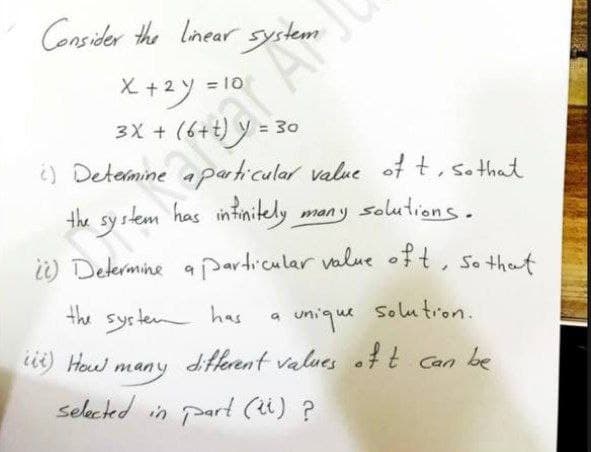 Consider the linear system
x + 2y = 10
3x + (6+t) y = 30
i) Determine a particular value of t, so that
the system has infinitely many solutions.
ii) Determine a particular value of t, so that
the system has a unique solution.
iii) How many different values of t can be
selected in part (ii) ?